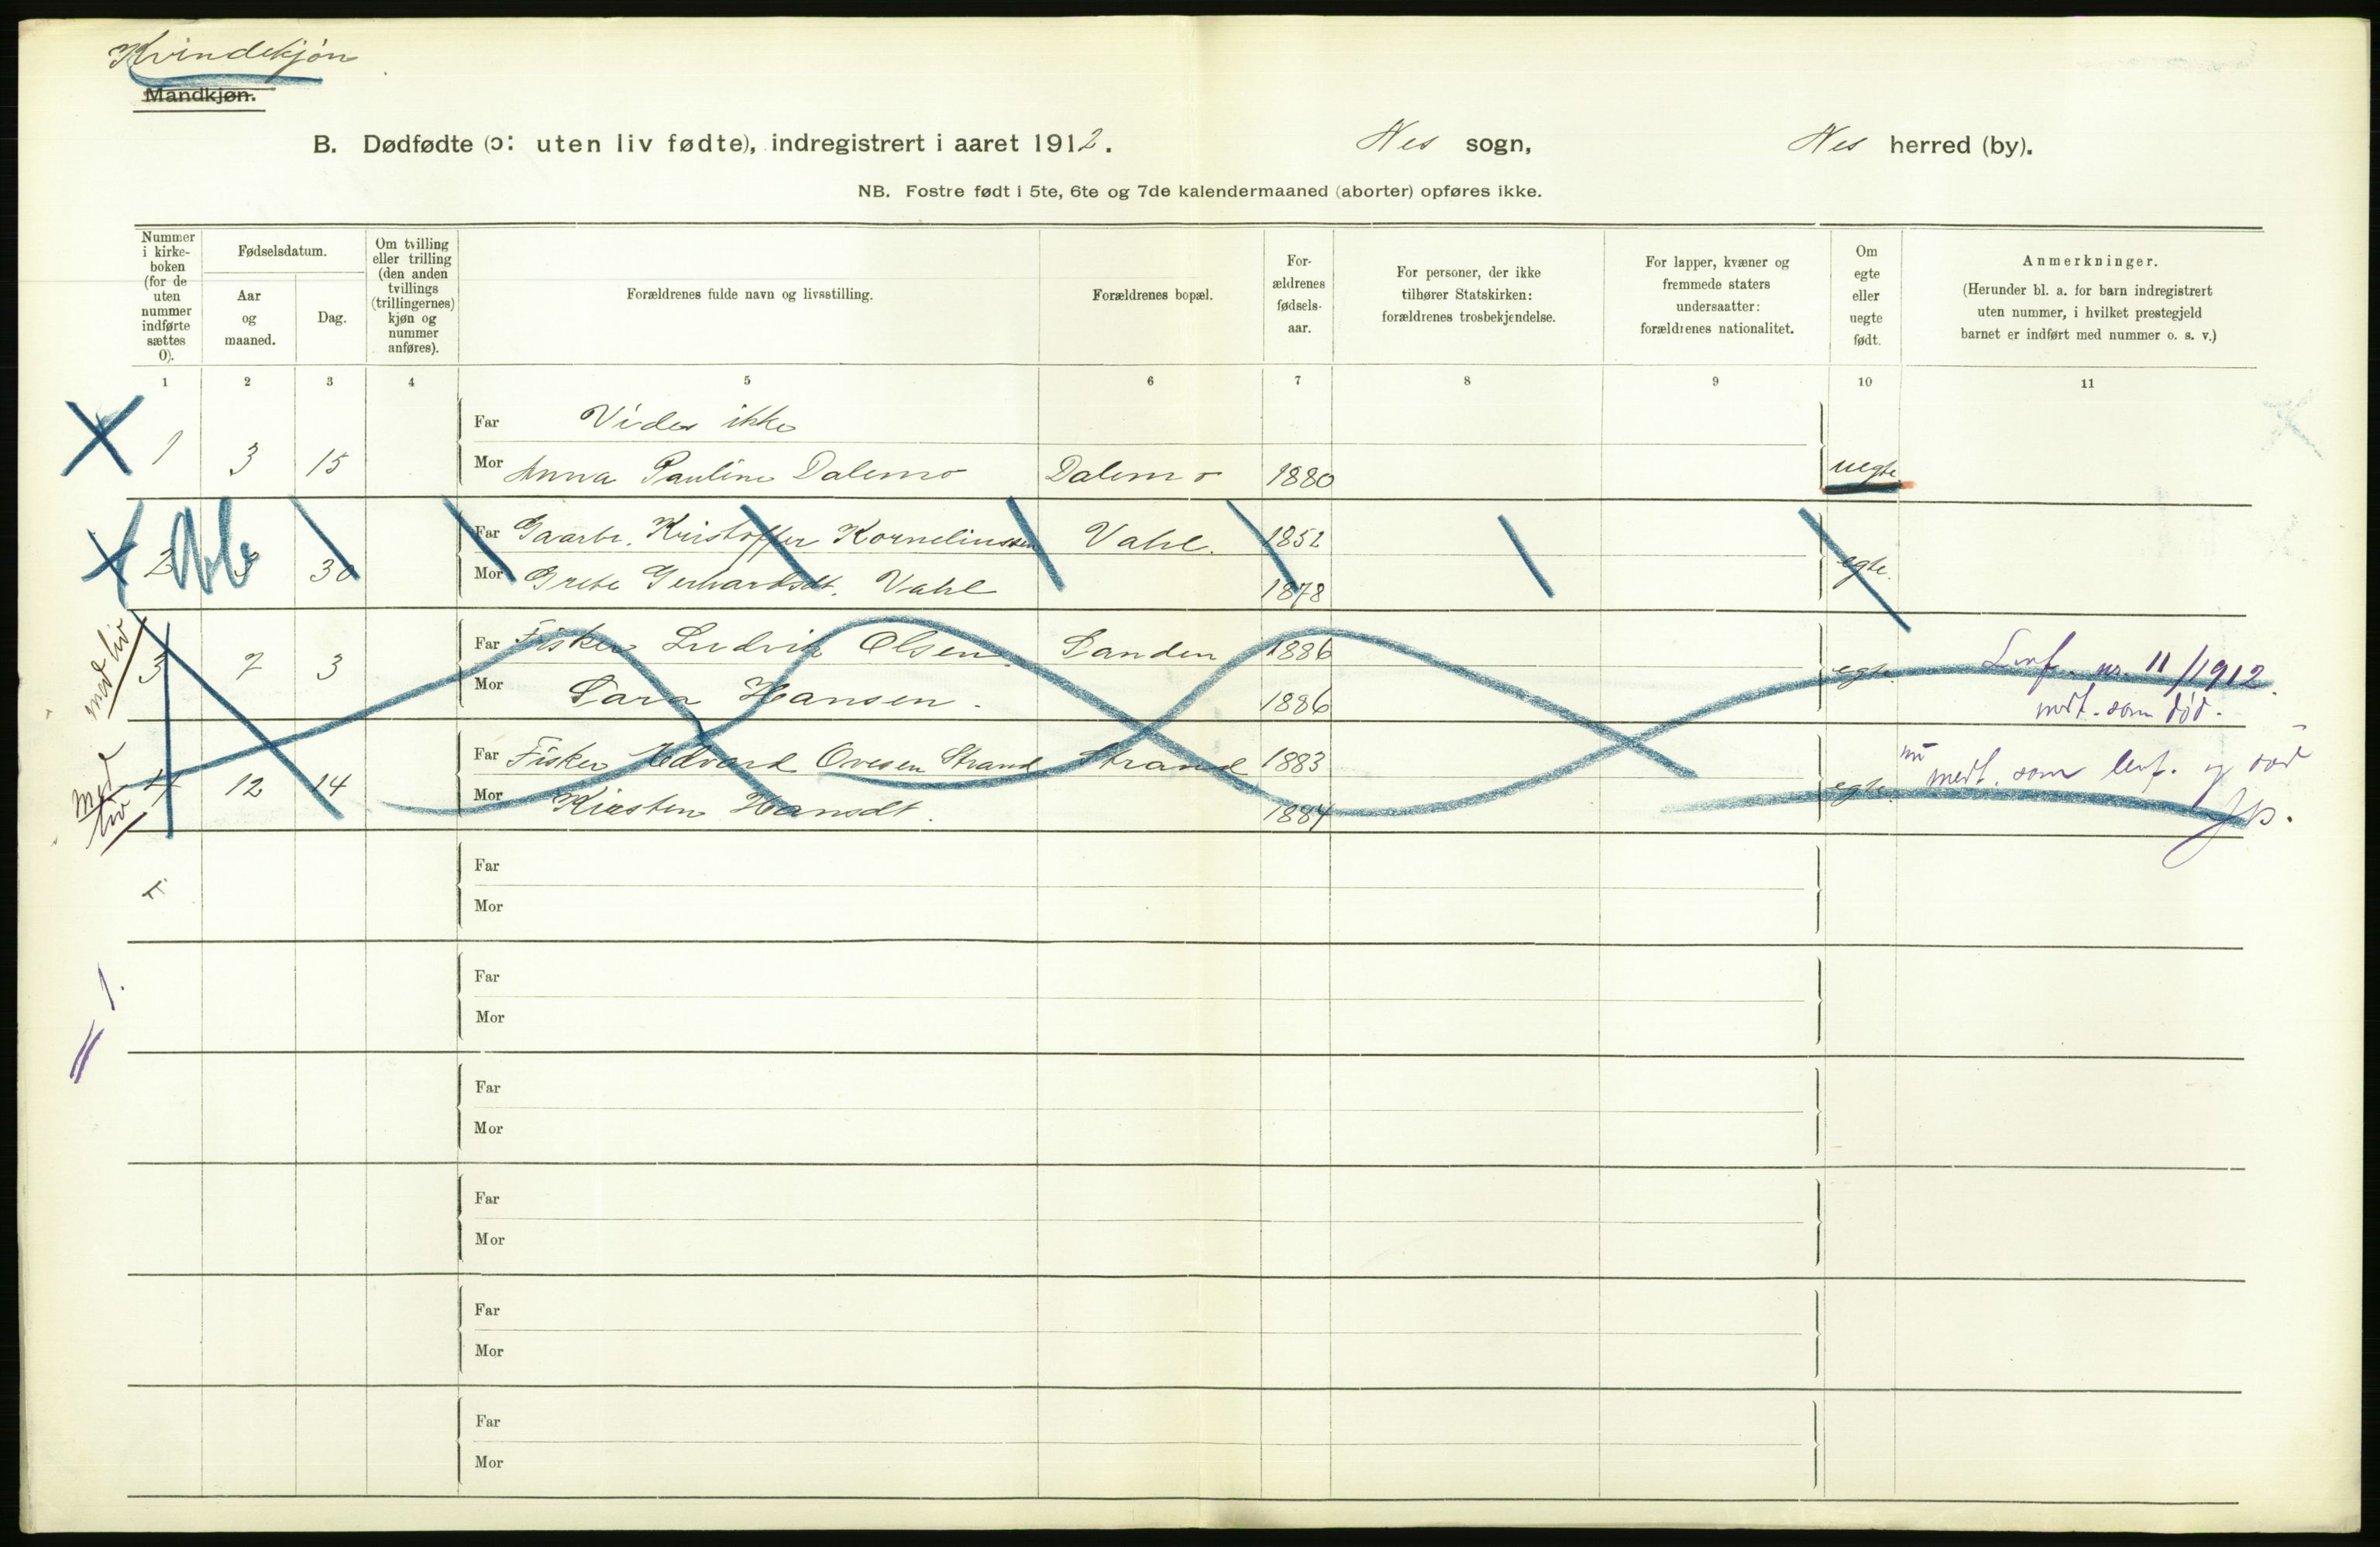 Kvindekjøn
Mandkjøn.
B. Dødfødte (ɔ: uten liv fødte), indregistrert i aaret 1912. Nes sogn, Nes herred (by).
NB. Fostre født i 5te, 6te og 7de kalendermaaned (aborter) opføres ikke.
Nummer
i kirke-
boken
(for de
uten
nummer
indførte
sættes
0).
Fødselsdatum.
Aar
og
maaned.
Dag.
Om tvilling
eller trilling
(den anden
tvillings
(trillingernes)
kjøn og
nummer
anføres).
Forældrenes fulde navn og livsstilling.
Forældrenes bopæl.
For-
ældrenes
fødsels-
aar.
For personer, der ikke
tilhører Statskirken:
forældrenes trosbekjendelse.
For lapper, kvæner og
fremmede staters
undersaatter:
forældrenes nationalitet.
Om
egte
eller
uegte
født.
Anmerkninger.
(Herunder bl. a. for barn indregistrert
uten nummer, i hvilket prestegjeld
barnet er indført med nummer o. s. v.)
1 2 3 4 5 6 7 8 9 10 11
Far Vides ikke
1 3 15 Mor Anna Pauline Dalemo Dalemo 1880 uegte
Far Gaarbr. Kristoffer Korneliussen Vahl. 1852
2 3 30 Mor Grete Gerhardsdt. Vahl 1878 egte.
med liv
Far Fisker Ludvik Olsen. Sanden 1886
3 7 3 egte. Levf. nr. 11/1912
Mor Sara Hansen. 1886 medt. som død.
med
liv
Far Fisker Edvard Ovesen Strand Strand 1883
4 12 14 egte. medt. som levf. og død
Mor Kirsten Hansdt. 1884
Far
Mor
1.
Far
Mor
Far
Mor
Far
Mor
Far
Mor
Far
Mor